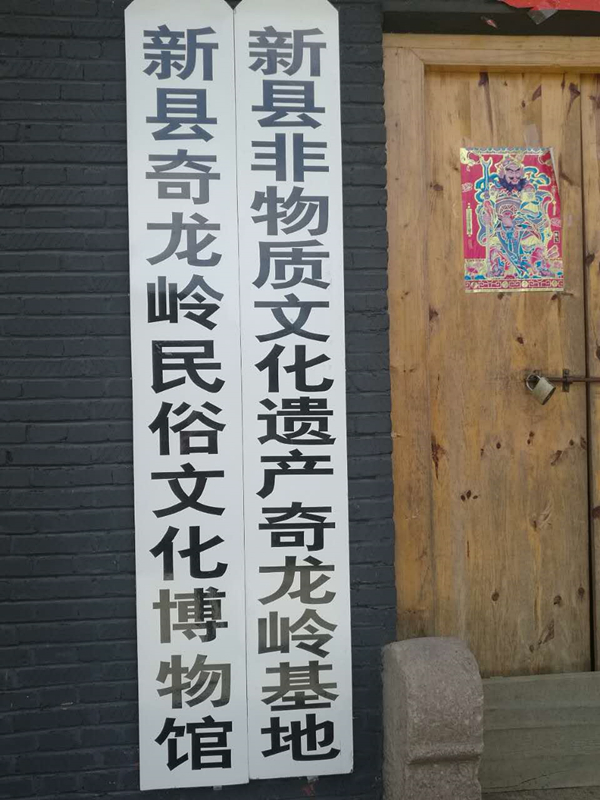 新县非物质文化遗产奇龙岭基地
新县奇龙岭民俗文化博物馆